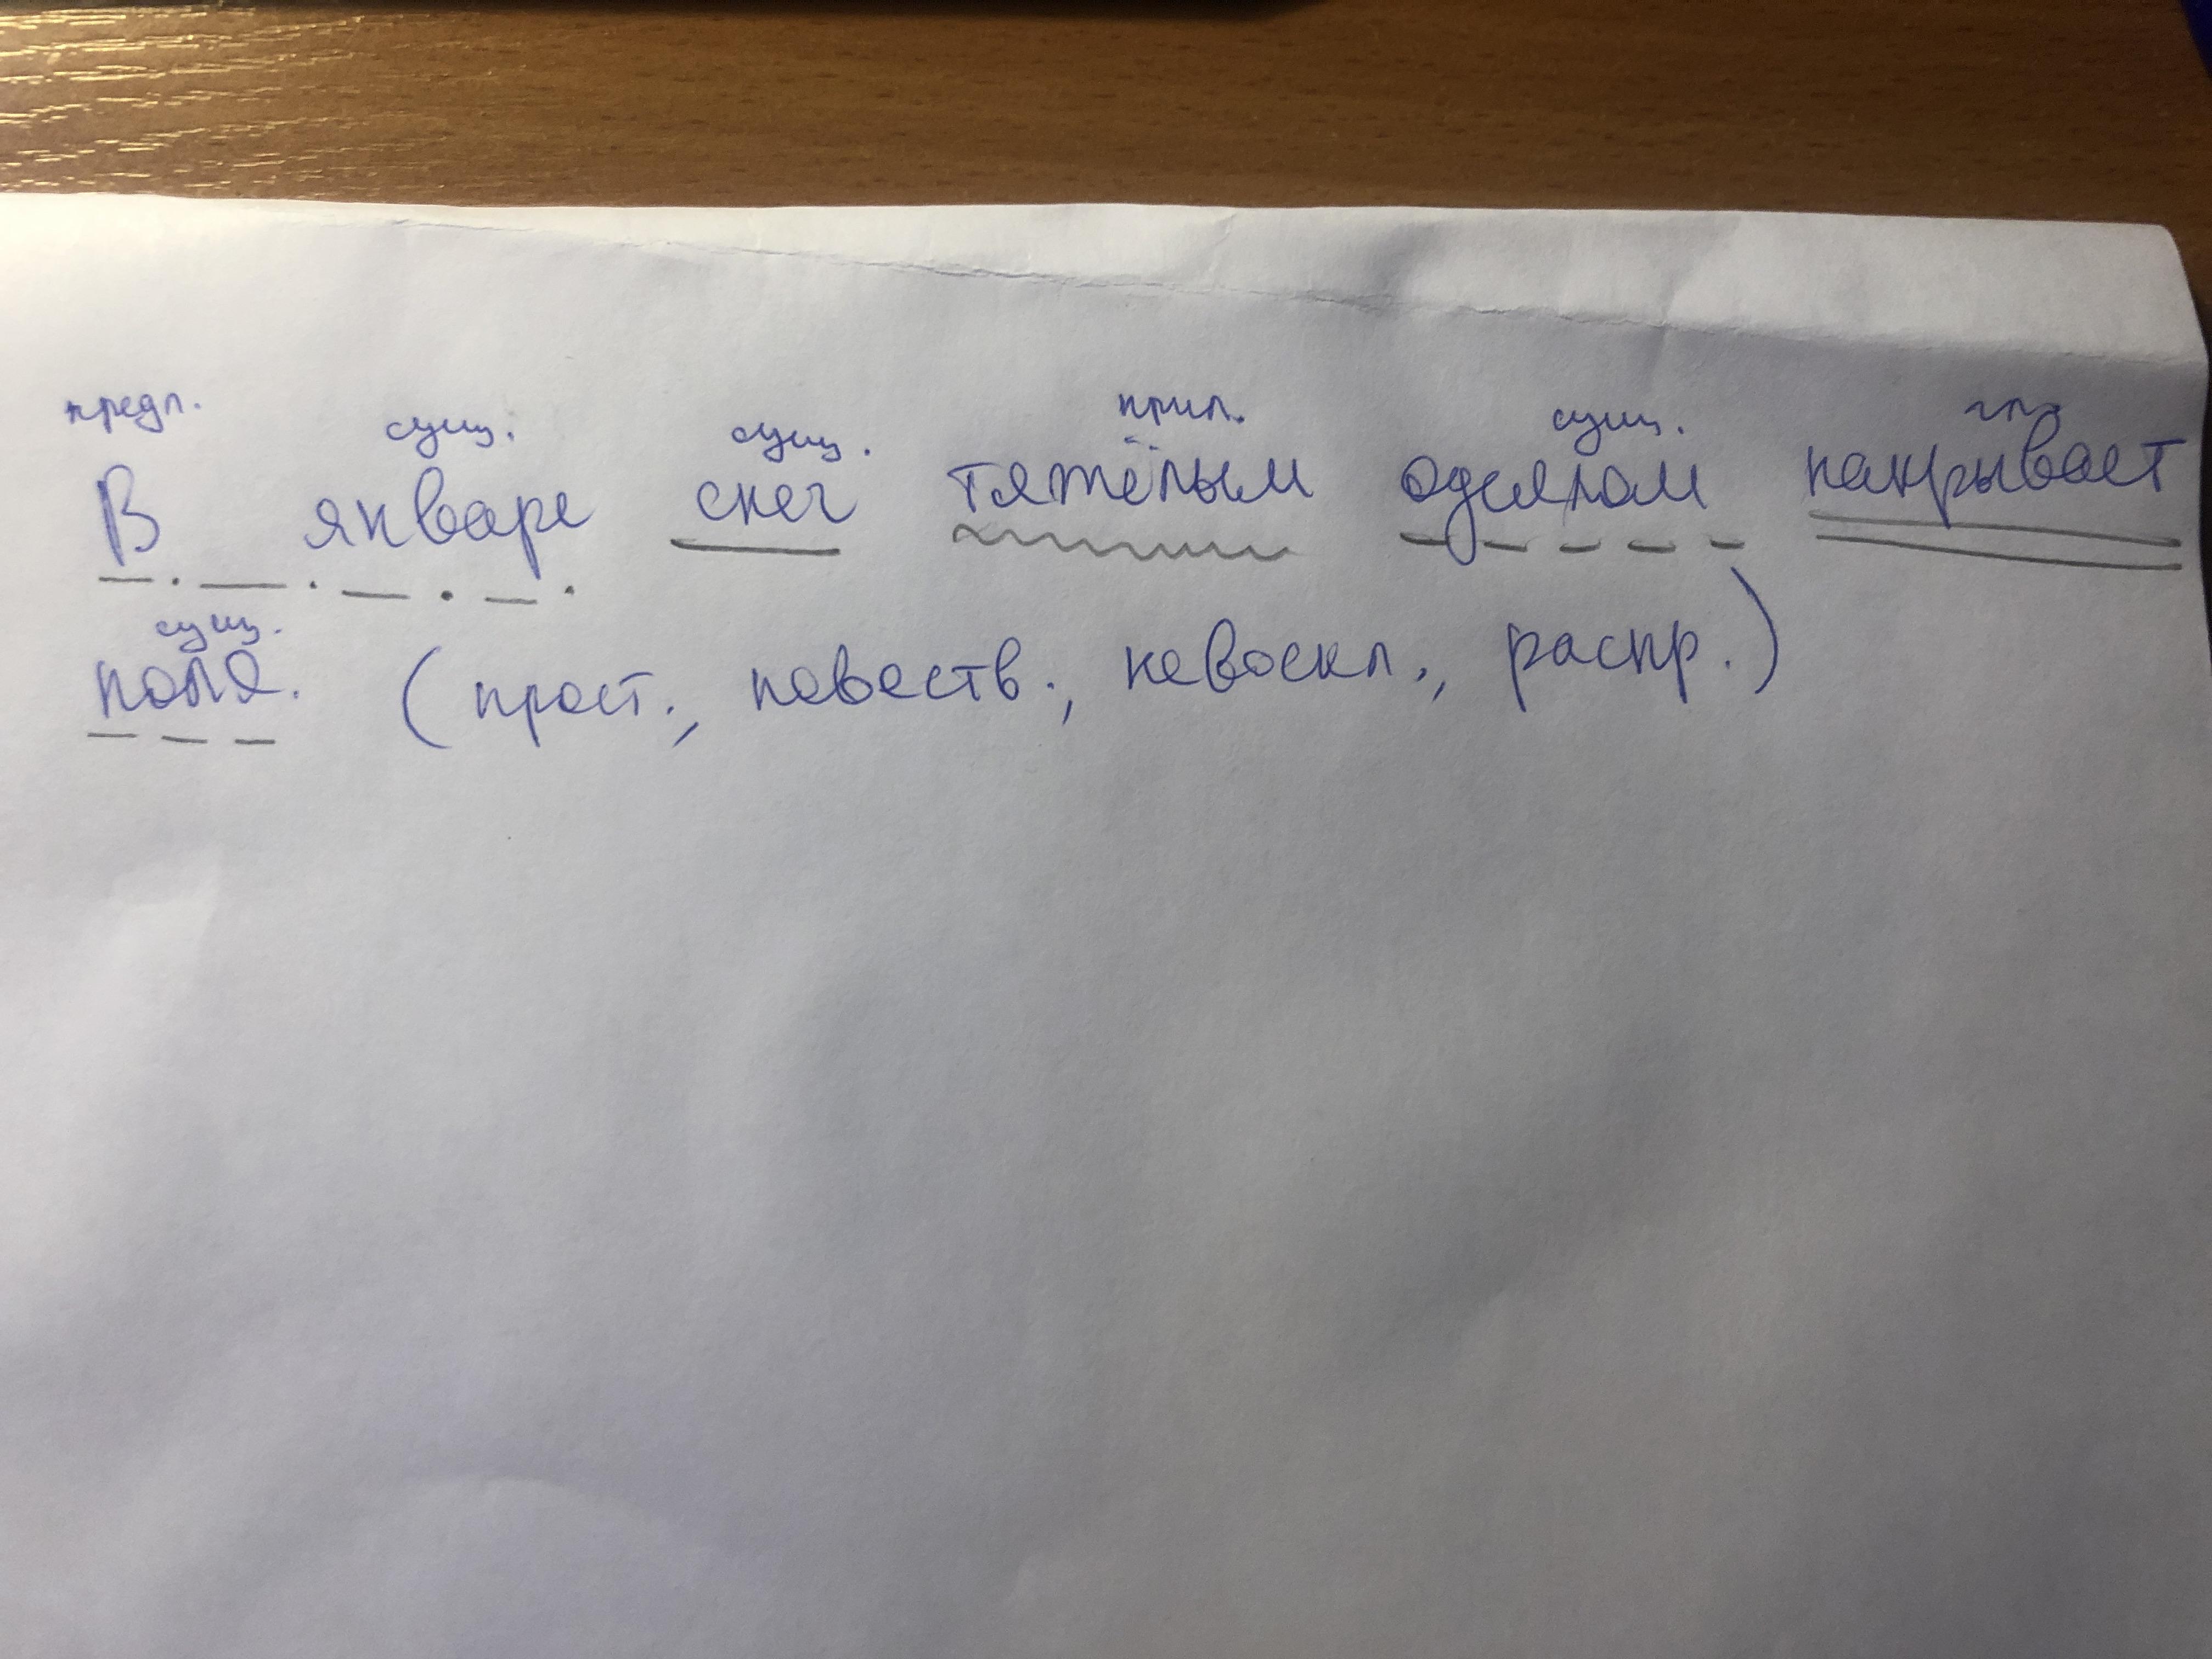 предл. сущ. сущ. прил. сущ. гл.
В январе снег тяжёлым одеялом накрывает
сущ.
поля. (прост., повеств., невоскл., распр.)